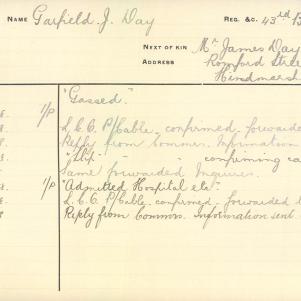 NAME Garfield J. Day REG. &C. 43rd B
NEXT OF KIN Mr James Day
ADDRESS Romford Stree
Hindmarsh
1/P "Gassed".
L.C.C. P/Cable confirmed forwarded
Reply from Common. Information
"Slip" - - confirming ca
Same forwarded Inquiries.
1/P "Admitted Hospital etc"
L.C.C. P/Cable. confirmed. forwarded
Reply from Common. Information sent